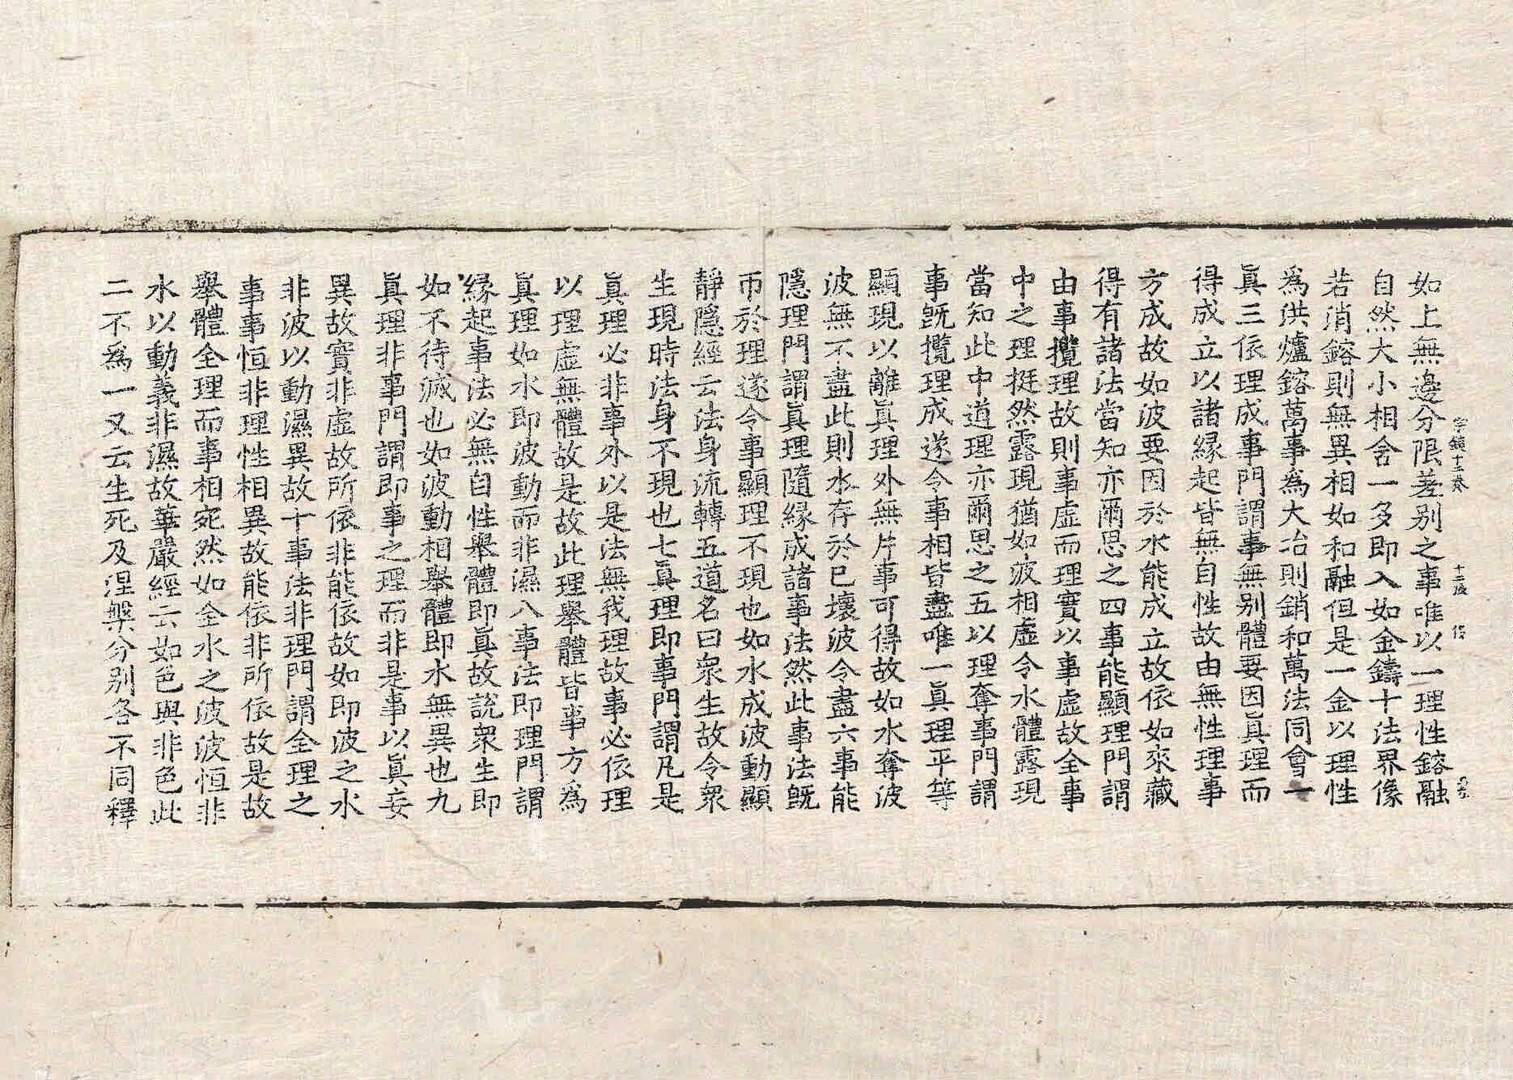 宗鏡十三卷　十二張
如上無邊分限差別之事唯以一理性鎔融
自然大小相含一多即入如金鑄十法界像
若消鎔則無異相如和融但是一金以理性
為洪爐鎔萬事為大冶則銷和萬法同會一
眞三依理成事門謂事無別體要因眞理而
得成立以諸緣起皆無自性故由無性理事
方成故如波要因於水能成立故依如來藏
得有諸法當知亦爾思之四事能顯理門謂
由事攬理故則事虛而理實以事虛故全事
中之理挺然露現猶如波相虛令水體露現
當知此中道理亦爾思之五以理奪事門謂
事旣攬理成遂令事相皆盡唯一眞理平等
顯現以離眞理外無片事可得故如水奪波
波無不盡此則水存於已壞波令盡六事能
隱理門謂眞理隨緣成諸事法然此事法旣
帀於理遂令事顯理不現也如水成波動顯
靜隱經云法身流轉五道名曰衆生故令衆
生現時法身不現也七眞理即事門謂凡是
眞理必非事外以是法無我理故事必依理
以理虛無體故是故此理舉體皆事方為
眞理如水即波動而非濕八事法即理門謂
緣起事法必無自性舉體即眞故說衆生即
如不待滅也如波動相舉體即水無異也九
眞理非事門謂即事之理而非是事以眞妄
異故實非虛故所依非能依故如即波之水
非波以動濕異故十事法非理門謂全理之
事事恒非理性相異故能依非所依故是故
舉體全理而事相宛然如全水之波波恒非
水以動義非濕故華嚴經云如色與非色此
二不為一又云生死及涅槃分別各不同釋